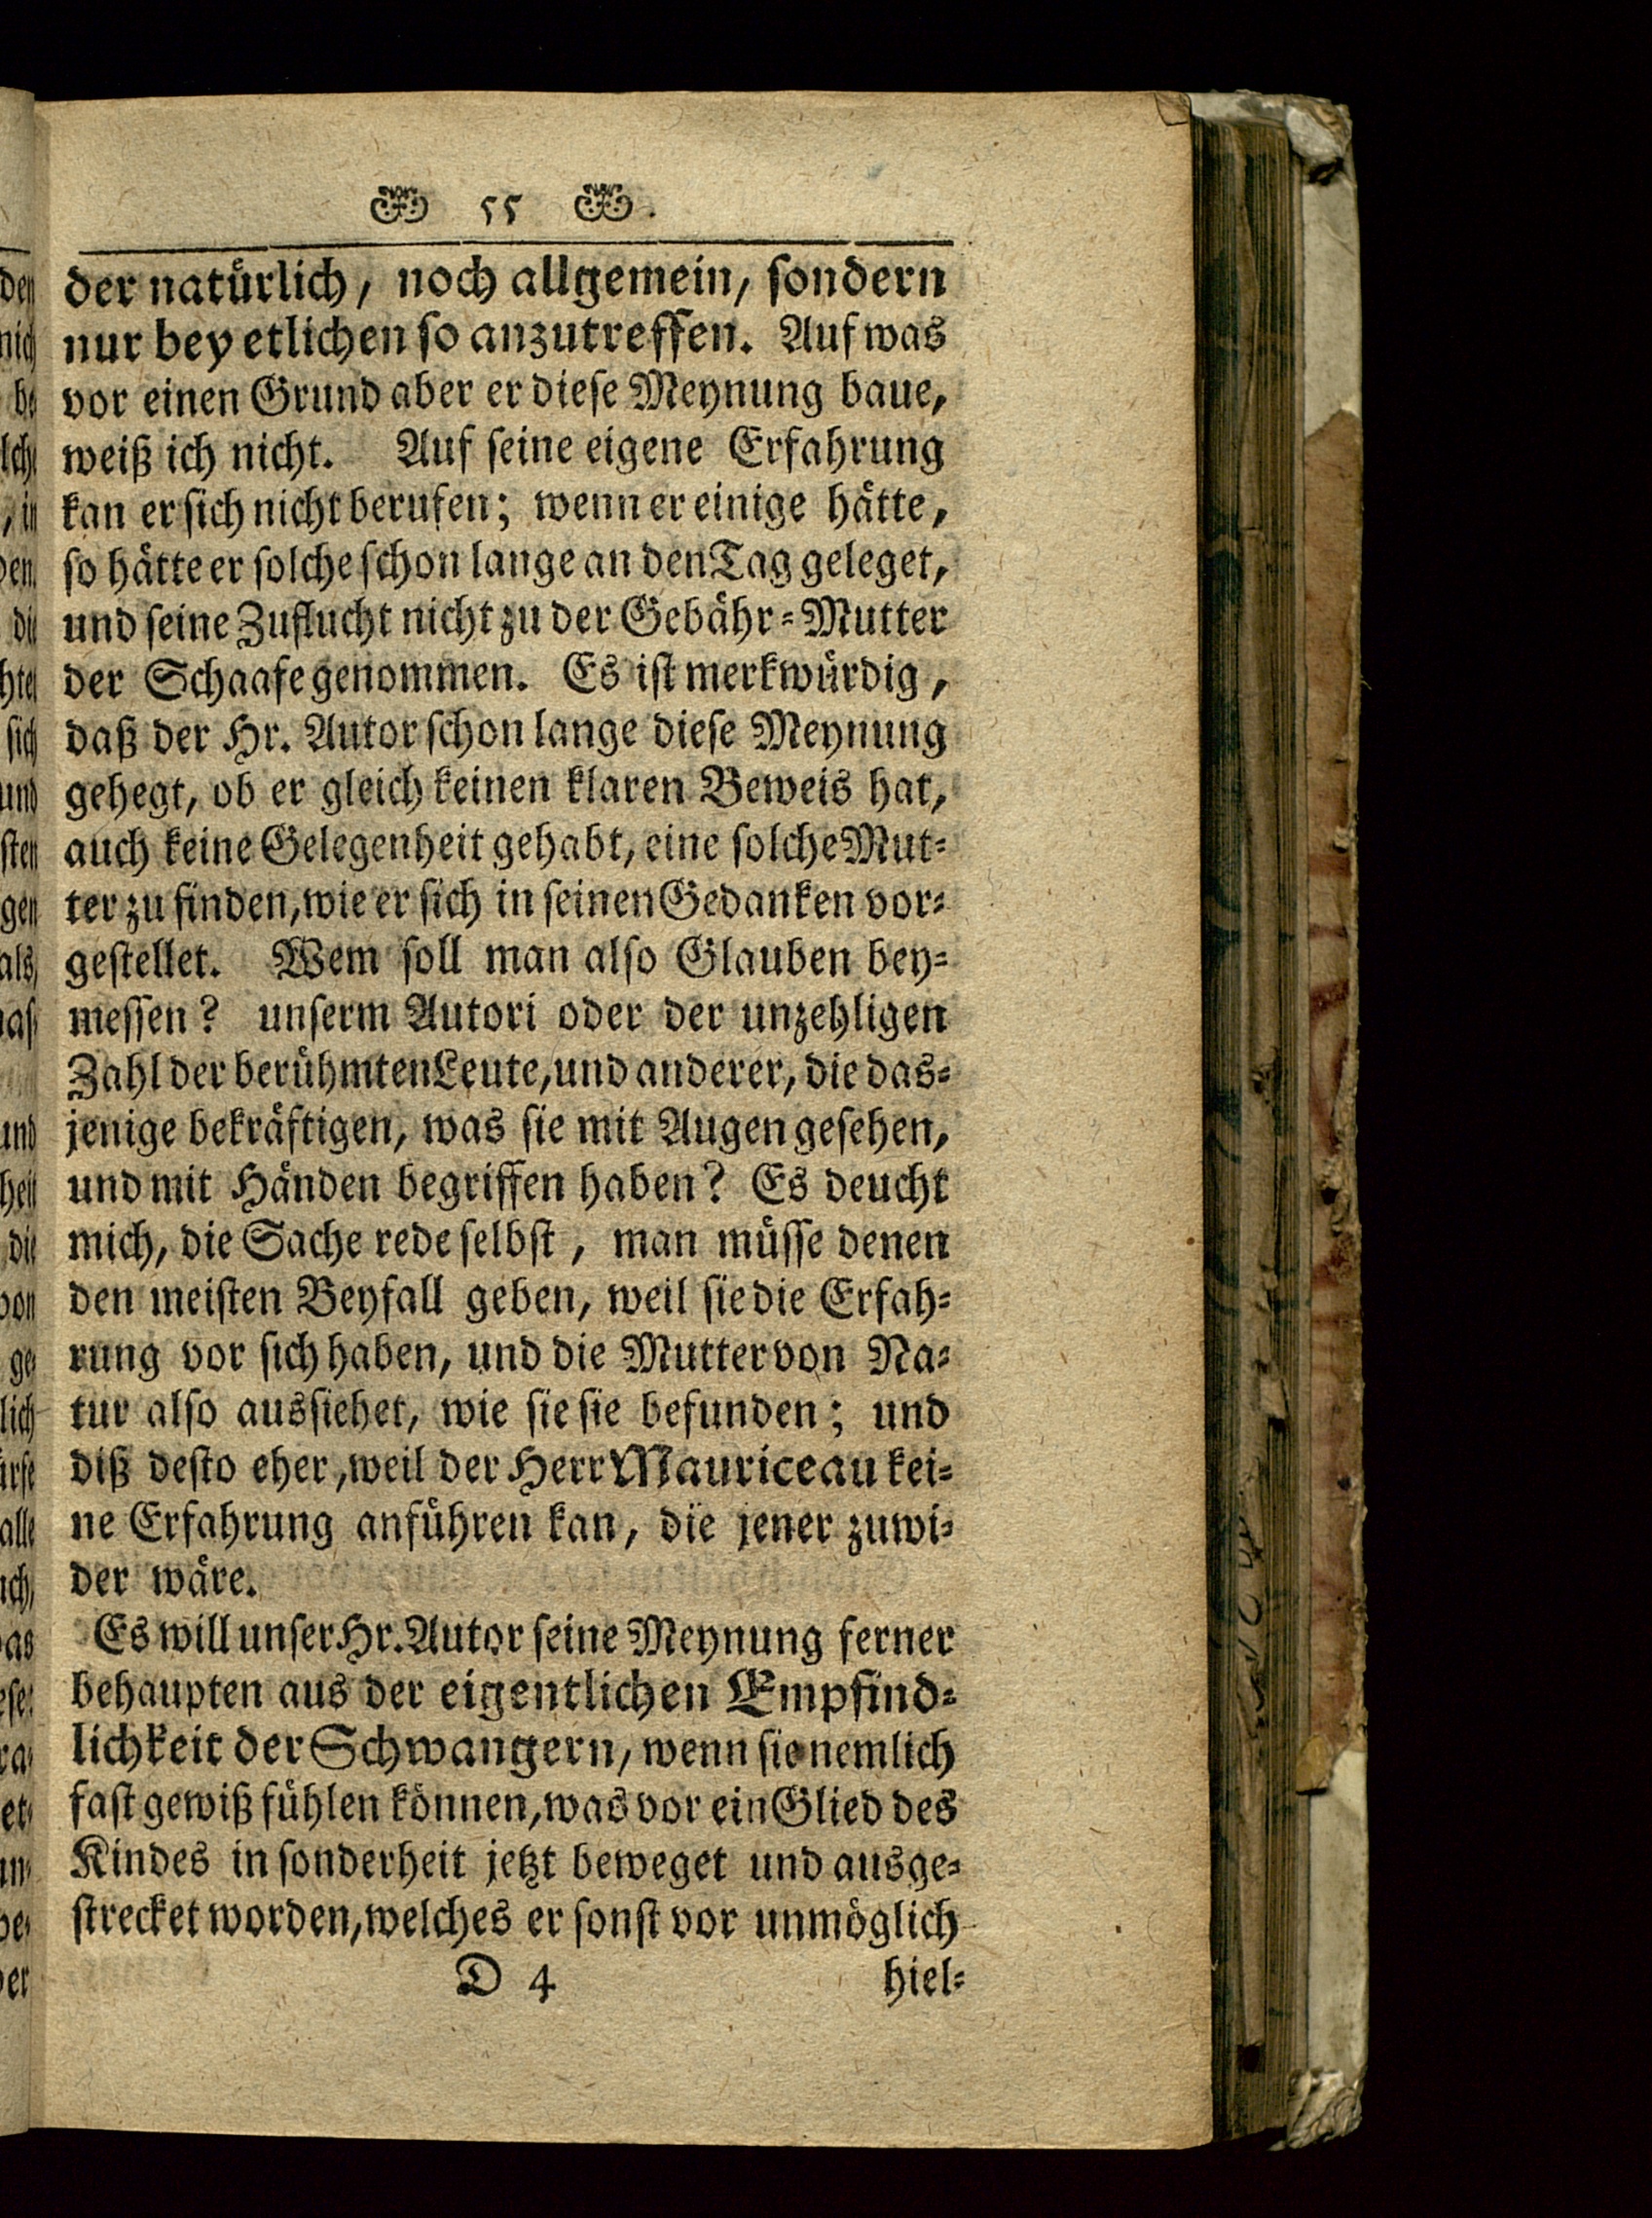 55
der natürlich, noch allgemein, sondern
nur bey etlichen so anzutreffen. Auf was
vor einen Grund aber er diese Meynung baue,
weiß ich nicht. Auf seine eigene Erfahrung
kan er sich nicht berufen; wenn er einige hätte,
so hätte er solche schon lange an den Tag geleget,
und seine Zuflucht nicht zu der Gebähr-Mutter
der Schaafe genommen. Es ist merkwürdig,
daß der Hr. Autor schon lange diese Meynung
gehegt, ob er gleich keinen klaren Beweis hat,
auch keine Gelegenheit gehabt, eine solche Mut-
ter zu finden, wie er sich in seinen Gedanken vor-
gestellet. Wem soll man also Glauben bey-
messen? unserm Autori oder der unzehligen
Zahl der berühmten Leute, und anderer, die das-
jenige bekräftigen, was sie mit Augen gesehen,
und mit Händen begriffen haben? Es deucht
mich, die Sache rede selbst, man müsse denen
den meisten Beyfall geben, weil sie die Erfah-
rung vor sich haben, und die Mutter von Na-
tur also aussiehet, wie sie sie befunden; und
diß desto eher, weil der Herr Mauriceau kei-
ne Erfahrung anführen kan, die jener zuwi-
der wäre.
Es will unser Hr. Autor seine Meynung ferner
behaupten aus der eigentlichen Empfind-
lichkeit der Schwangern, wenn sie nemlich
fast gewiß fühlen können, was vor ein Glied des
Kindes in sonderheit jetzt beweget und ausge-
strecket worden, welches er sonst vor unmöglich
D 4 hiel-